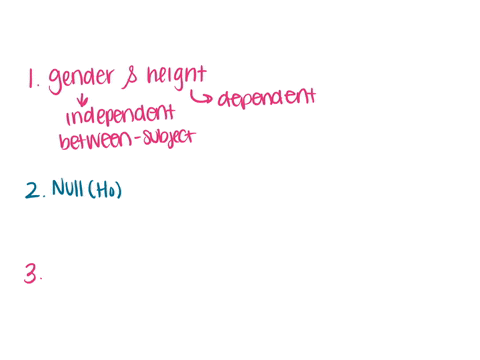 1. gender & height
independent
dependent
between-subject
2. Null (H0)
3.